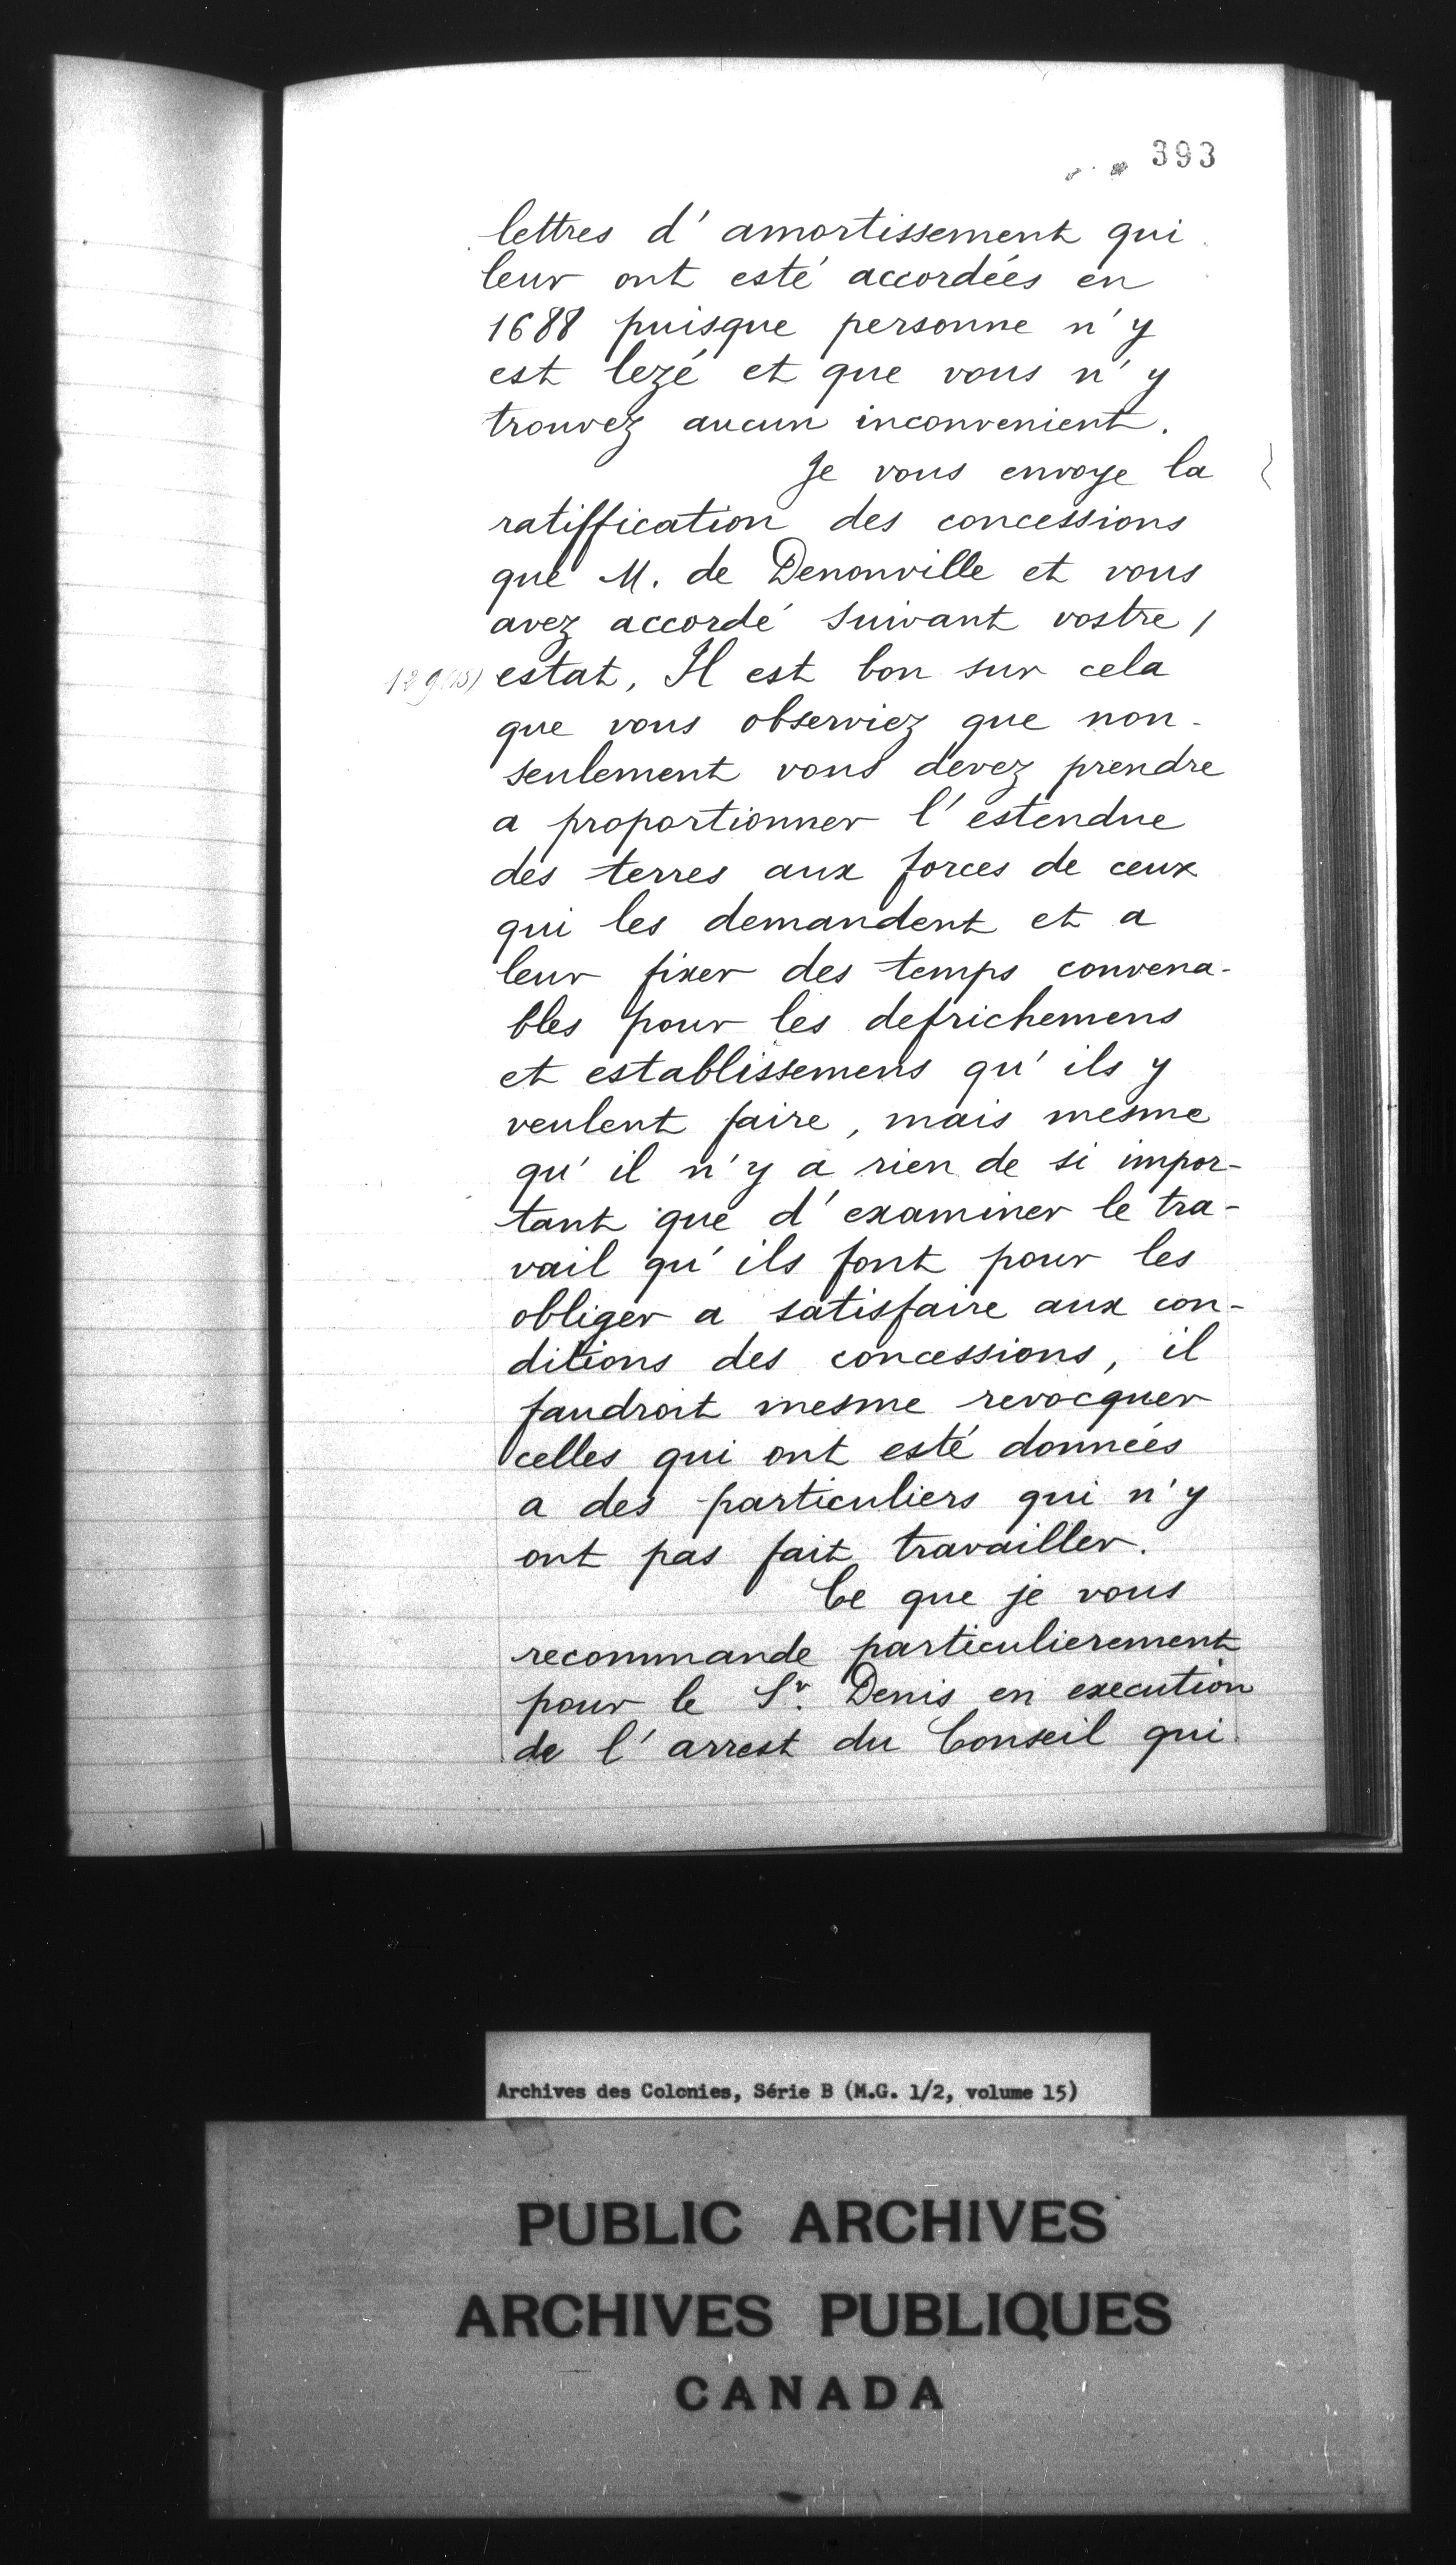 393
lettres d' amortissement qui
leur ont esté accordées en
1688 puisque personne n'y
est lezé et que vous n'y
trouvez aucun inconvenient.
Je vous envoye la
ratiffication des concessions
que M. de Denonville et vous
avez accordé suivant vostre /
estat, Il est bon sur cela
que vous observiez que non-
seulement vous devez prendre
a proportionner l'estendue
des terres aux forces de ceux
qui les demandent et a
leur fixer des temps convena-
bles pour les defrichemens
et establissemens qu'ils y
veulent faire, mais mesme
qu'il n'y a rien de si impor-
tant que d'examiner le tra-
vail qu'ils font pour les
obliger a satisfaire aux con-
ditions des concessions, il
faudroit mesme revocquer
celles qui ont esté données
a des particuliers qui n'y
ont pas fait travailler.
Ce que je vous
recommande particulierement
pour le Sr. Denis en execution
de l'arrest du Conseil qui
Archives des Colonies, Série B (M.G. 1/2, volume 15)
PUBLIC ARCHIVES
ARCHIVES PUBLIQUES
CANADA